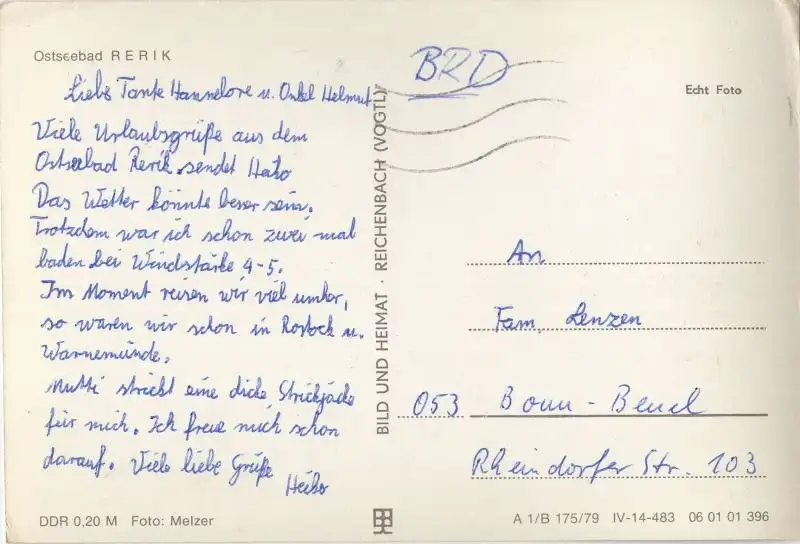 Ostseebad RERIK
Liebe Tante Hannelore u. Onkel Helmut
Viele Urlaubsgrüße aus dem
Ostseebad Rerik sendet Heiko
Das Wetter könnte besser sein.
Trotzdem war ich schon zwei mal
baden bei Windstärke 4-5.
Im Moment reisen wir viel umher,
so waren wir schon in Rostock u.
Warnemünde.
Mutti strickt eine dicke Strickjacke
für mich. Ich freue mich schon
darauf. Viele liebe Grüße
Heiko
DDR 0,20 M Foto: Melzer
BILD UND HEIMAT · REICHENBACH (VOGTL)
BRD
Echt Foto
An
Fam. Lenzen
053 Bonn - Beuel
Rheindorfer Str. 103
A 1/B 175/79 IV-14-483 06 01 01 396